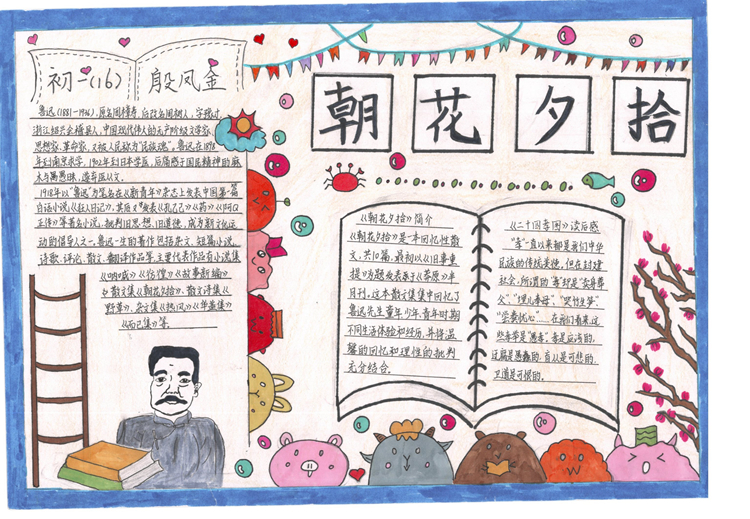 初一(16) 殷凤金
朝花夕拾
鲁迅(1881-1936),原名周樟寿,后改名周树人,字豫才,
浙江绍兴会稽县人,中国现代伟大的无产阶级文学家、
思想家、革命家,又被人民称为"民族魂"。鲁迅在1898
年到南京求学,1902年到日本学医,后痛感于国民精神的麻
木与愚昧,遂弃医从文。
1918年以"鲁迅"为笔名在《新青年》杂志上发表中国第一篇
白话小说《狂人日记》,其后又发表《孔乙己》《药》《阿Q
正传》等著名小说,批判旧思想、旧道德,成为新文化运
动的倡导人之一。鲁迅一生的著作包括杂文、短篇小说、
诗歌、评论、散文、翻译作品等,主要代表作品有小说集
《呐喊》《彷徨》《故事新编》
散文集《朝花夕拾》、散文诗集《
野草》、杂文集《热风》《华盖集》
《而已集》等
《朝花夕拾》简介
《朝花夕拾》是一本回忆性散
文,共10篇,最初以《旧事重
提》为题发表于《莽原》半
月刊。这本散文集集中回忆了
鲁迅先生童年少年青年时期
不同生活体验和经历,并将温
馨的回忆和理性的批判
充分结合。
《二十四孝图》读后感
"孝"一直以来都是我们中华
民族的传统美德,但在封建
社会,所谓的"孝"却是"卖身葬
父","埋儿奉母","哭竹生笋",
"尝粪忧心"……在我们看来,这
些孝举是"愚孝"。孝是应该的,
迂腐是愚蠢的,盲从是可悲的,
卫道是可恨的。